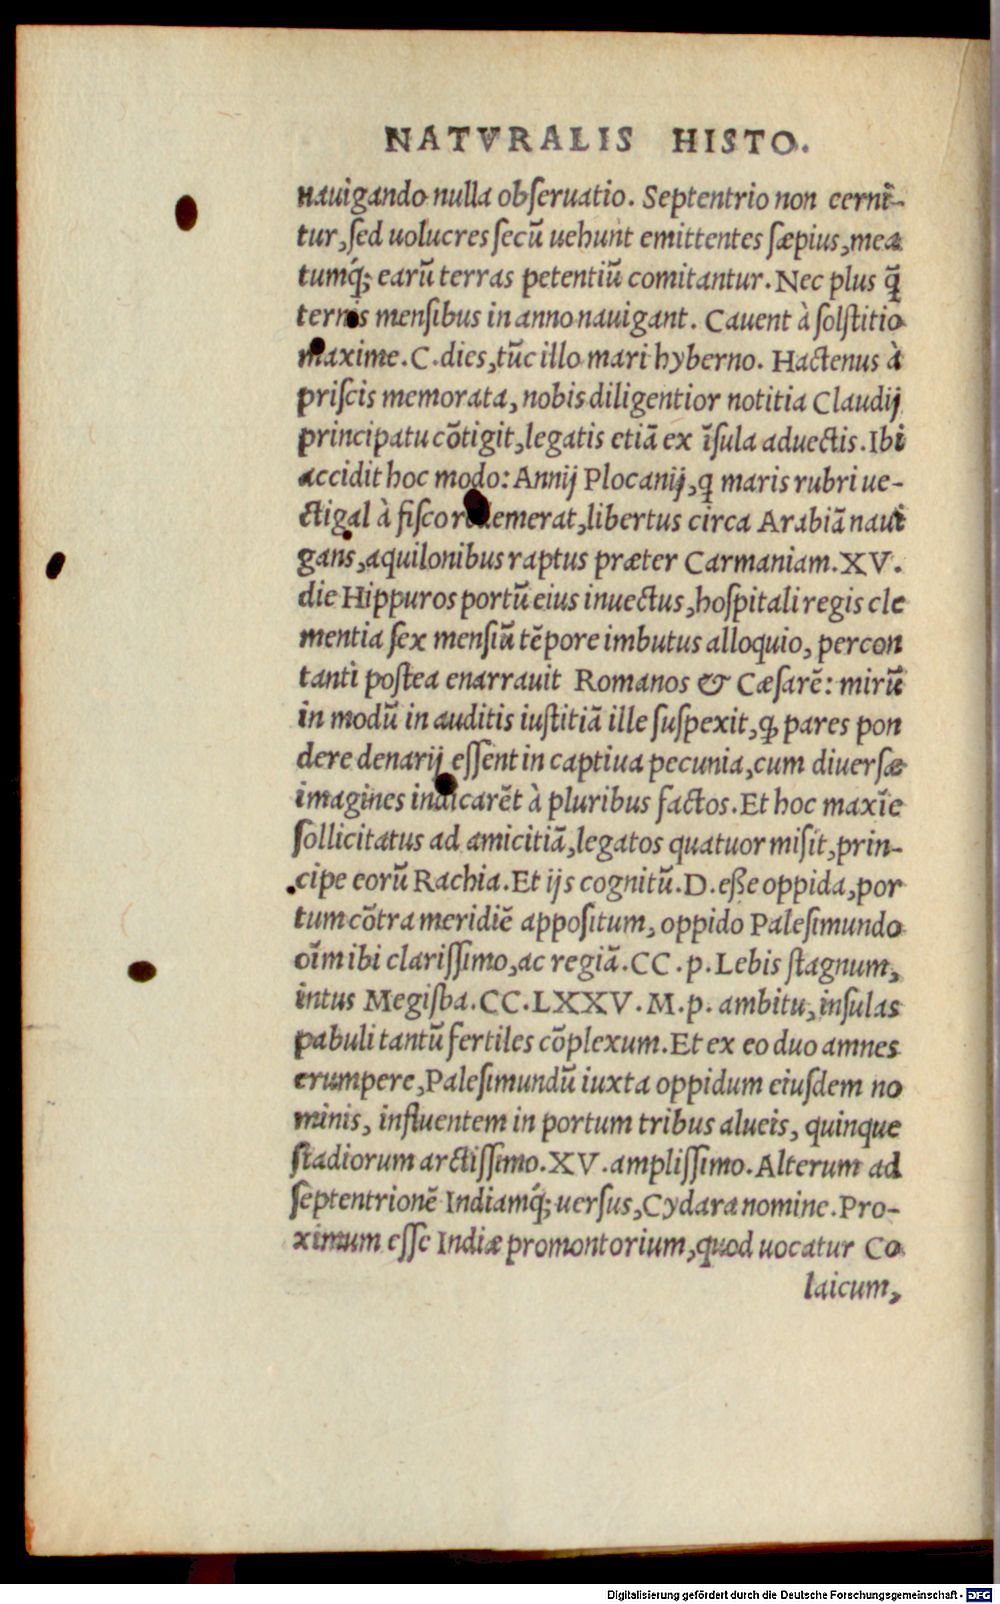 NATVRALIS HISTO.
nauigando nulla obſeruatio. Septentrio non cernĩ-
tur, ſed uolucres ſecũ uehunt emittentes ſæpius, mea
tumq́; earũ terras petentiũ comitantur. Nec plus q̃
ternis menſibus in anno nauigant. Cauent à ſolſtitio
maxime. C. dies, tũc illo mari hyberno. Hactenus à
priſcis memorata, nobis diligentior notitia Claudij
principatu cõtigit, legatis etiã ex ĩſula aduectis. Ibi
accidit hoc modo: Annij Plocanij, ꝗ maris rubri ue-
ctigal à fiſco redemerat, libertus circa Arabiã naui
gans, aquilonibus raptus præter Carmaniam. XV.
die Hippuros portũ eius inuectus, hoſpitali regis cle
mentia ſex menſiũ tẽpore imbutus alloquio, percon
tanti poſtea enarrauit Romanos & Cæſarẽ: mirũ
in modũ in auditis iuſtitiã ille ſuſpexit, ꝙ pares pon
dere denarij eſſent in captiua pecunia, cum diuerſæ
imagines indicarẽt à pluribus factos. Et hoc maxĩe
ſollicitatus ad amicitiã, legatos quatuor miſit, prin-
cipe eorũ Rachia. Et ijs cognitũ. D. eſſe oppida, por
tum cõtra meridiẽ appoſitum, oppido Paleſimundo
oĩm ibi clariſſimo, ac regiã. CC. p. Lebis ſtagnum,
intus Megiſba. CC. LXXV. M. p. ambitu, inſulas
pabuli tantũ fertiles cõplexum. Et ex eo duo amnes
erumpere, Paleſimundũ iuxta oppidum eiuſdem no
minis, influentem in portum tribus alueis, quinque
ſtadiorum arctiſſimo. XV. ampliſſimo. Alterum ad
ſeptentrionẽ Indiamq́; uerſus, Cydara nomine. Pro-
ximum eſſe Indiæ promontorium, quod uocatur Co
laicum,
Digitalisierung gefördert durch die Deutsche Forschungsgemeinschaft - DFG